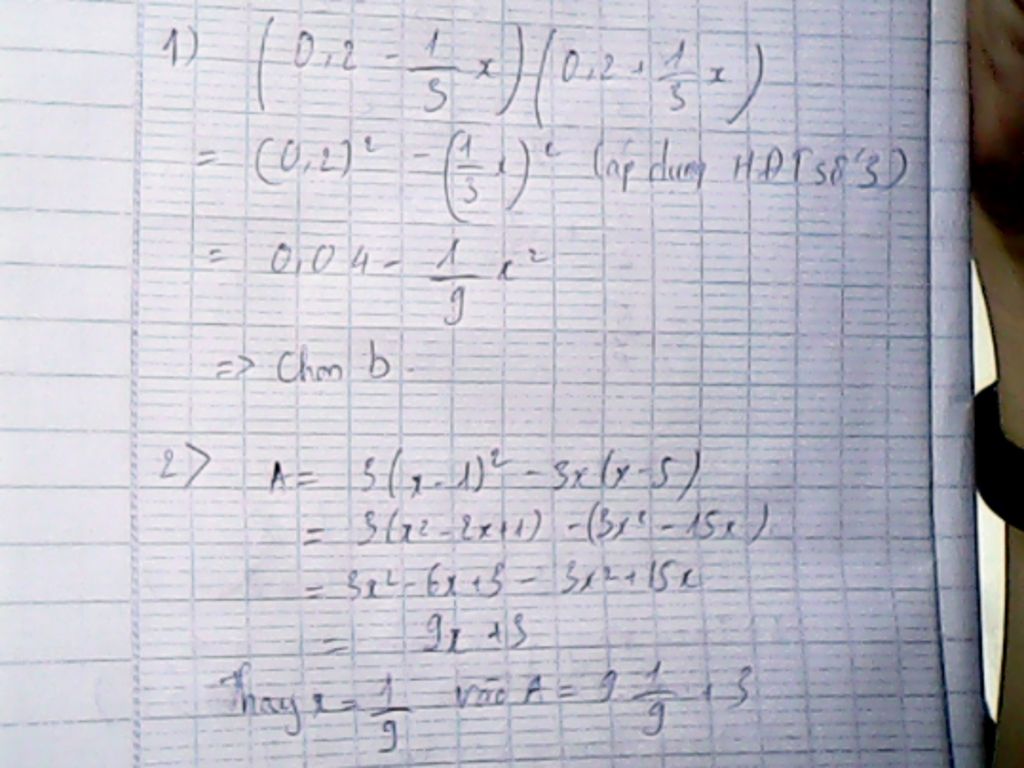 1) (0,2 - 1/3 x)(0,2 + 1/3 x)
= (0,2)² - (1/3 x)² (áp dụng HĐT số 3)
= 0,04 - 1/9 x²
=> Chọn b.
2> A = 3(x-1)² - 3x(x-5)
= 3(x² - 2x+1) - (3x² - 15x)
= 3x² - 6x + 3 - 3x² + 15x
= 9x + 3
Thay x = 1/9 vào A = 9 1/9 + 3